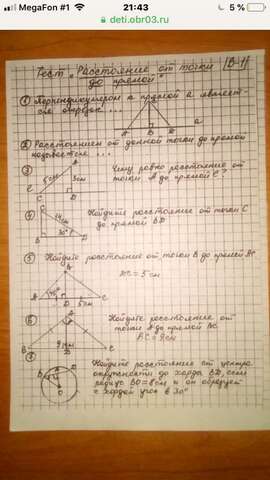 MegaFon
21:43
51 %
deti.obr03.ru
Тест „Расстояние от точки
до прямой"
[В-1]
① Перпендикуляром к прямой а является отрезок ...
A B D a
② Расстоянием от данной точки до прямой
называется ...
③ Чему ровно расстояние от
точки А до прямой С?
A 5см 3см C D
④ Найдите расстояние от точки С
до прямой BD
C 30° B D
⑤ Найдите расстояние от точки В до прямой АС
5см
A D C
⑥ Найдите расстояние от
точки А до прямой ВС
ВС = 9см
A B 9см D C
⑦ Найдите расстояние от центра
окружности до хорды
если
радиус ВО = 8см и он образует
с хордой угол в 30°
B O